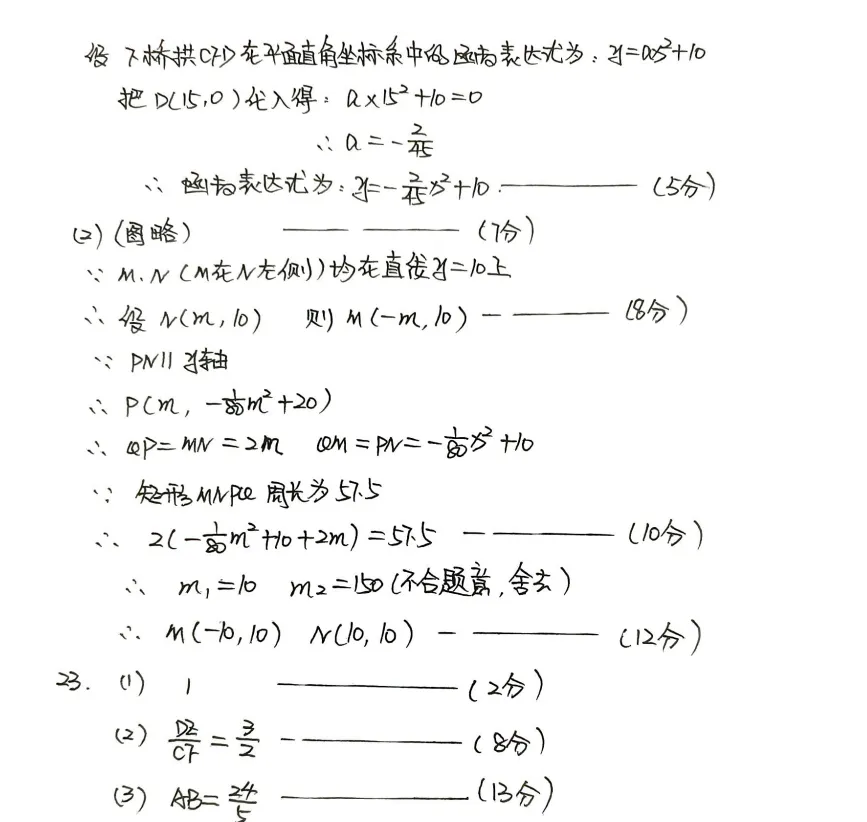 设下桥拱CFD在平面直角坐标系中的函数表达式为：y=ax²+10
把D(15,0)代入得：a×15²+10=0
∴ a=-2/45
∴ 函数表达式为：y=-2/45x²+10 ———— (5分)
(2)(图略) —— ——— (7分)
∵ M、N(M在N左侧)均在直线y=10上
∴ 设N(m,10) 则M(-m,10) - ——— (8分)
∵ PN∥y轴
∴ P(m, -1/80m²+20)
∴ QP=MN=2m QM=PN=-1/80x²+10
∵ 矩形MNPQ周长为57.5
∴ 2(-1/80m²+10+2m)=57.5 - ——— (10分)
∴ m₁=10 m₂=150(不合题意,舍去)
∴ M(-10,10) N(10,10) - ——— (12分)
23. (1) 1 ———— (2分)
(2) DE/CF=3/2 - ———— (8分)
(3) AB=24/5 ———— (13分)